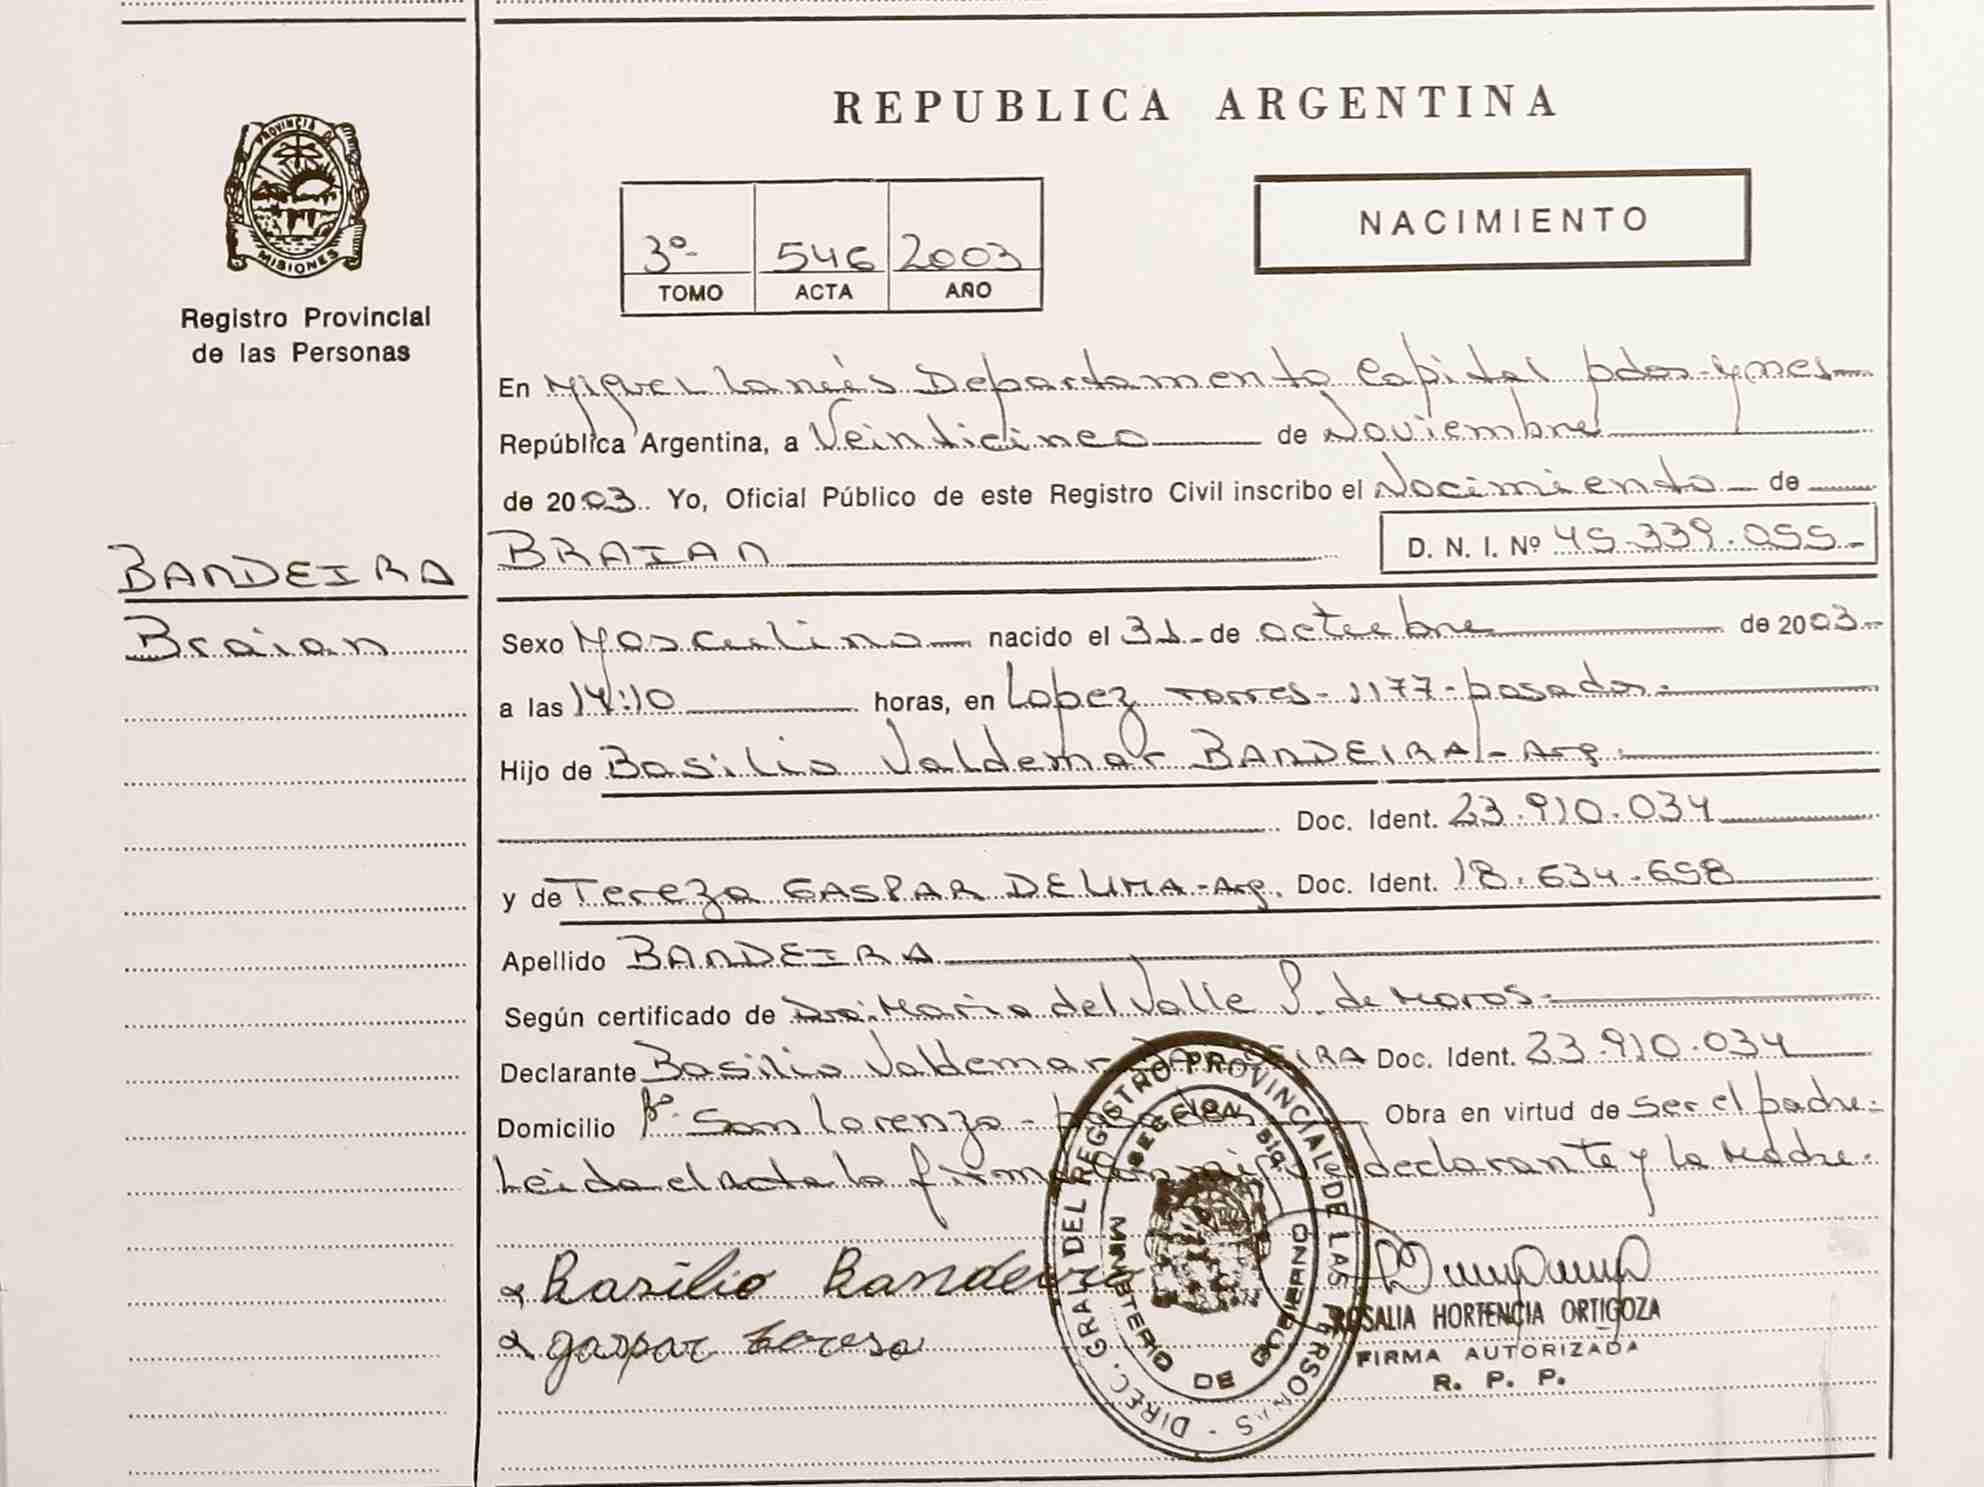 PROVINCIA DE
MISIONES
Registro Provincial
de las Personas
BANDEIRA
Braian
REPUBLICA ARGENTINA
3º- 546 2003
TOMO ACTA AÑO
NACIMIENTO
En Miguel Lanús Departamento Capital pdas-y mes
República Argentina, a Veinticinco de Noviembre
de 2003. Yo, Oficial Público de este Registro Civil inscribo el Nacimiento de
BRAIAN D. N. I. Nº 45.339.055-
Sexo Masculino nacido el 31 de octubre de 2003-
a las 14:10 horas, en Lopez Torres-1177-posadas-
Hijo de Basilio Valdemar BANDEIRA-Arg.
Doc. Ident. 23.910.034
y de Tereza GASPAR DE LIMA-Arg. Doc. Ident. 18.634.658
Apellido BANDEIRA
Según certificado de Dra. Maria del Valle S. de Moros-
Declarante Basilio Valdemar BANDEIRA Doc. Ident. 23.910.034
Domicilio Bº. San Lorenzo- Obra en virtud de ser el padre-
Leida el Acta la firma conmigo el declarante y la Madre.
Basilio Bandeira
gaspar teresa
DIREC. GRAL. DEL REGISTRO PROVINCIAL DE LAS PERSONAS
MINISTERIO DE GOBIERNO
ROSALIA HORTENCIA ORTIGOZA
FIRMA AUTORIZADA
R. P. P.